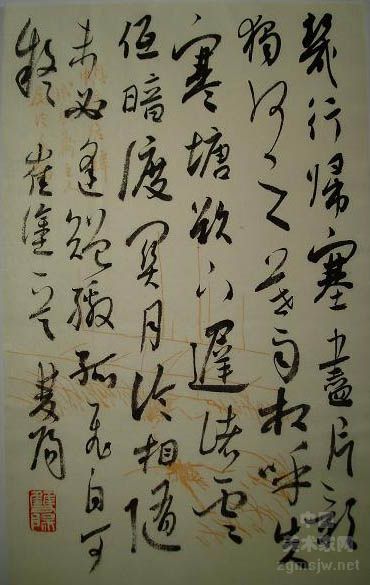 幾行帰塞盡片影
獨何之暮雨相呼失
寒塘欲下遲渚雲
低暗度関月冷相隨
未必逢矰繳孤飛自可
疑 崔塗一首
中国
美术家网
zgmsjw.net